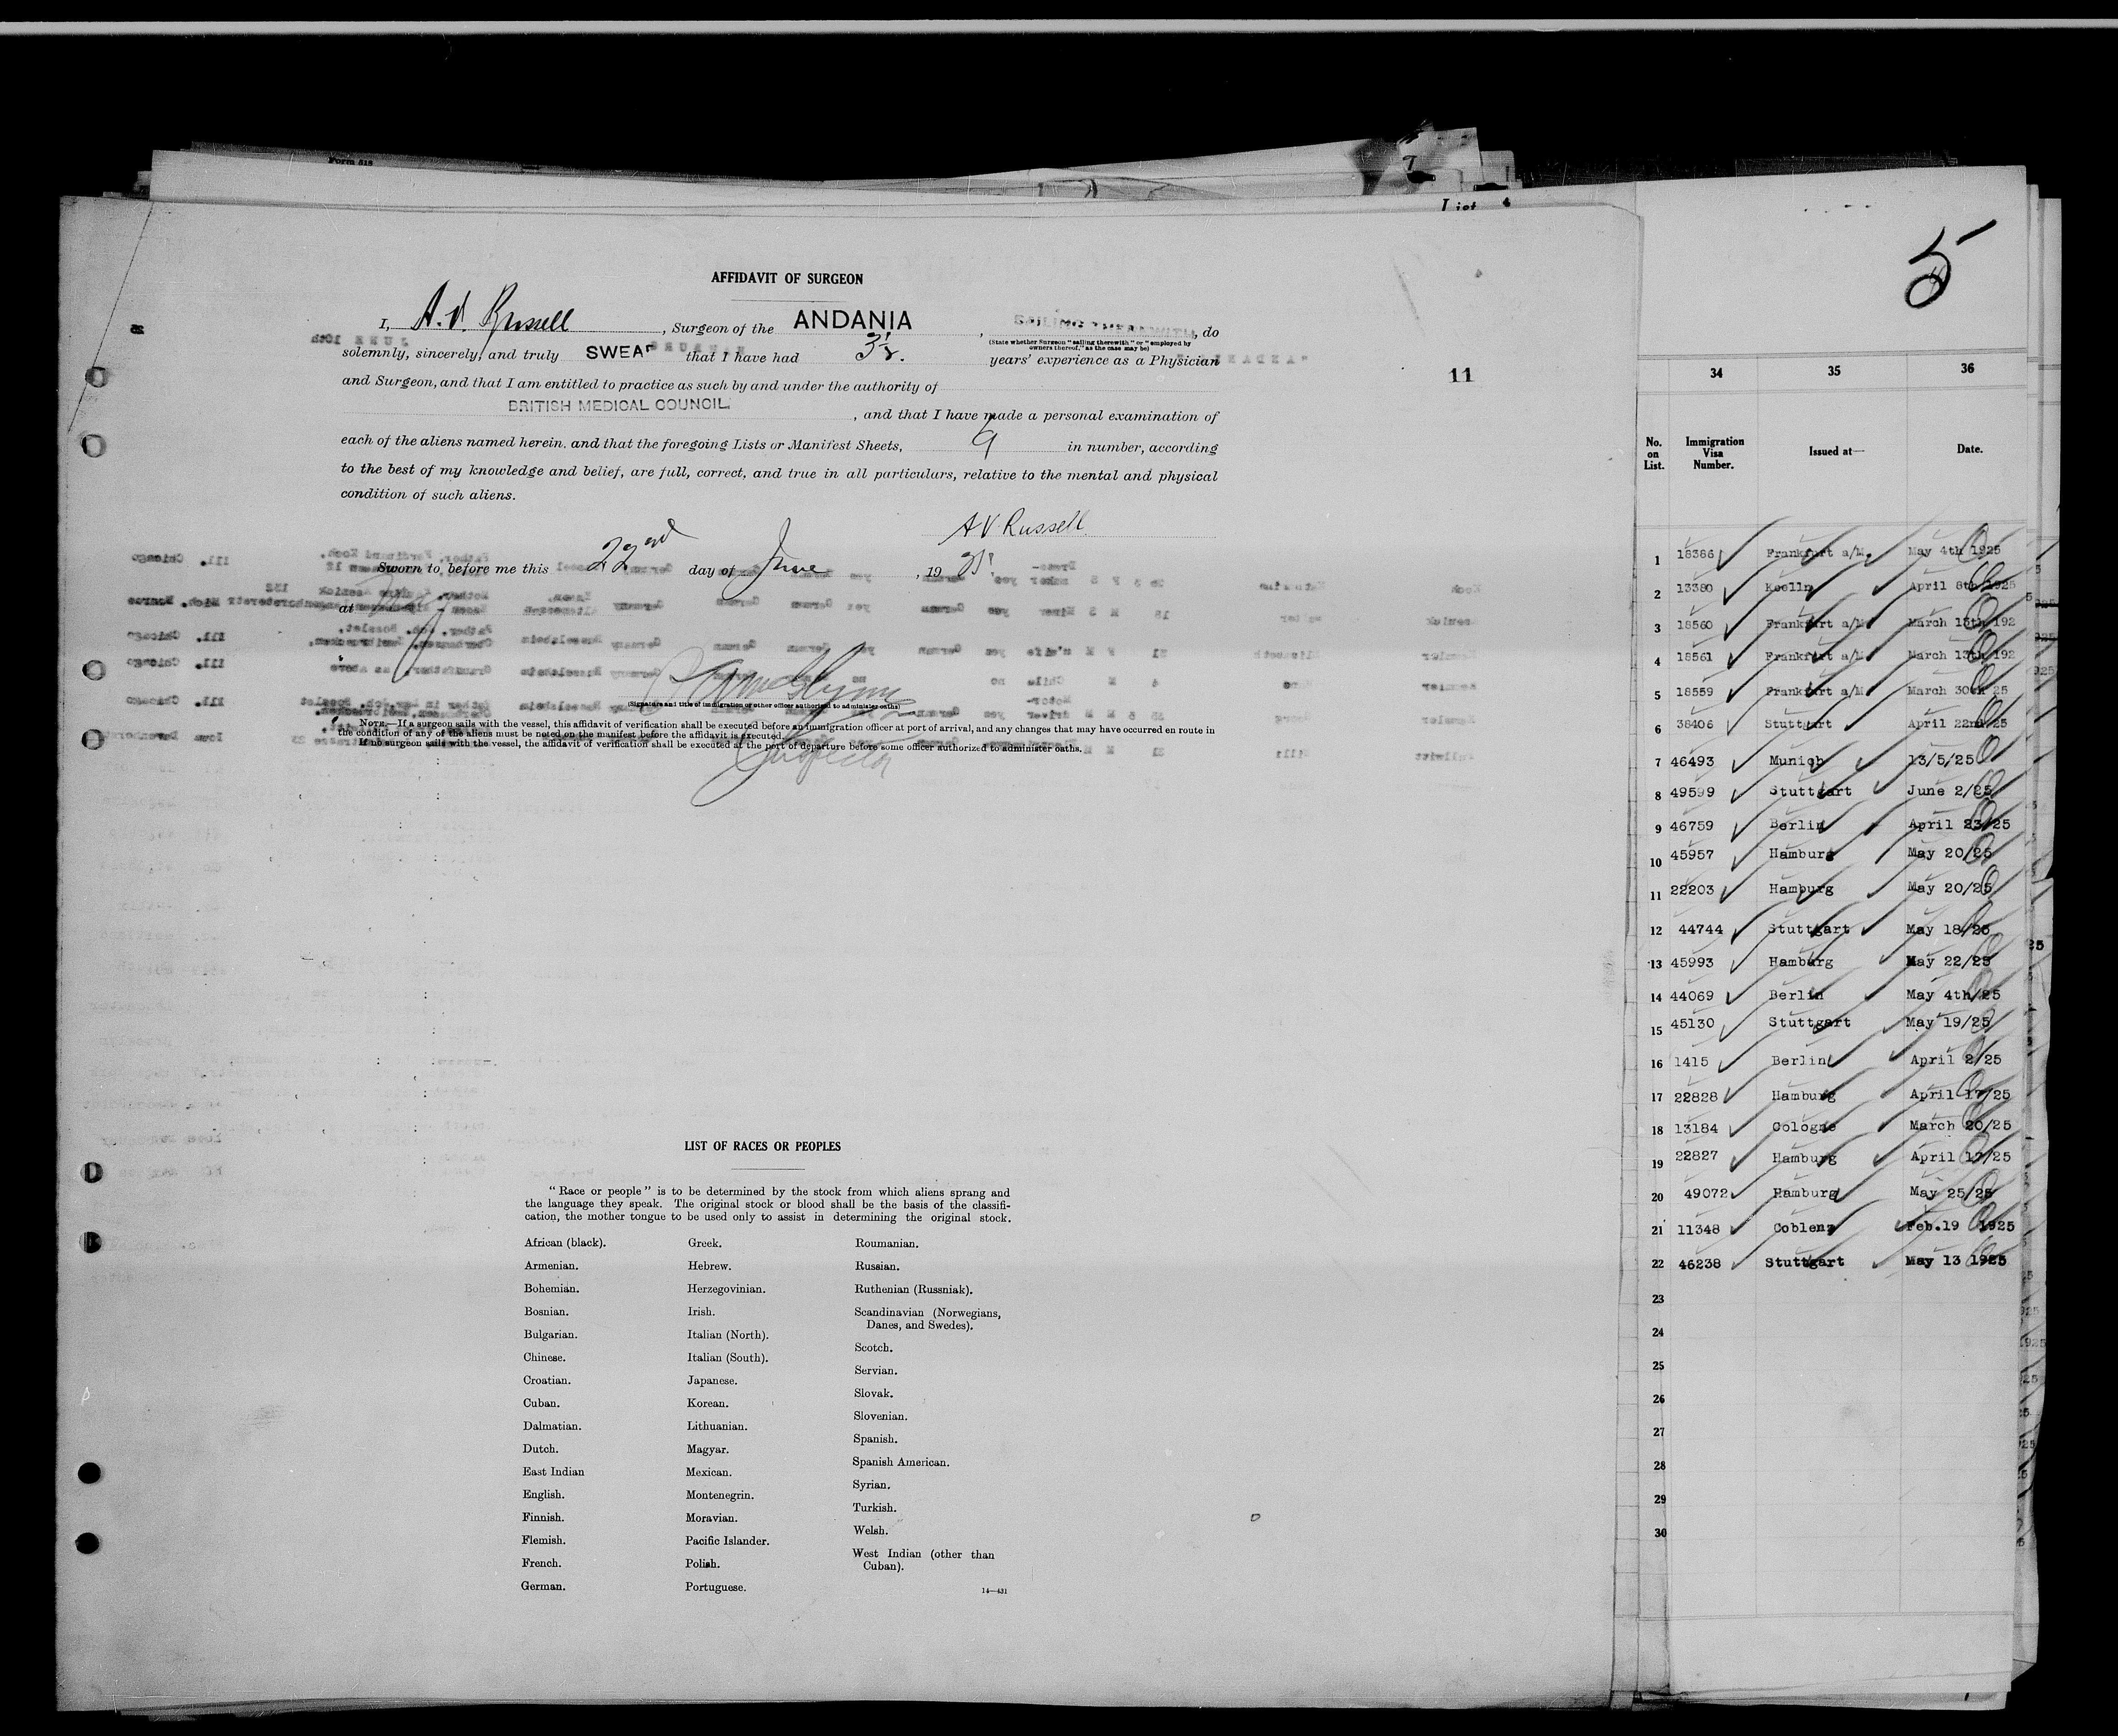 Form 518
7
List 4
5
AFFIDAVIT OF SURGEON
I, A. V. Russell, Surgeon of the ANDANIA, SAILING THEREWITH, do
(State whether Surgeon "sailing therewith" or "employed by
owners thereof," as the case may be)
solemnly, sincerely, and truly SWEAR that I have had 3½. years' experience as a Physician
and Surgeon, and that I am entitled to practice as such by and under the authority of
BRITISH MEDICAL COUNCIL, and that I have made a personal examination of
each of the aliens named herein, and that the foregoing Lists or Manifest Sheets, 9 in number, according
to the best of my knowledge and belief, are full, correct, and true in all particulars, relative to the mental and physical
condition of such aliens.
A V Russell
Sworn to before me this 22nd day of June, 19 25
at
(Signature and title of immigration or other officer authorized to administer oaths)
Inspector
NOTE.—If a surgeon sails with the vessel, this affidavit of verification shall be executed before an immigration officer at port of arrival, and any changes that may have occurred en route in
the condition of any of the aliens must be noted on the manifest before the affidavit is executed.
If no surgeon sails with the vessel, the affidavit of verification shall be executed at the port of departure before some officer authorized to administer oaths.
11
LIST OF RACES OR PEOPLES
"Race or people" is to be determined by the stock from which aliens sprang and
the language they speak. The original stock or blood shall be the basis of the classifi-
cation, the mother tongue to be used only to assist in determining the original stock.
African (black).
Armenian.
Bohemian.
Bosnian.
Bulgarian.
Chinese.
Croatian.
Cuban.
Dalmatian.
Dutch.
East Indian
English.
Finnish.
Flemish.
French.
German.
Greek.
Hebrew.
Herzegovinian.
Irish.
Italian (North).
Italian (South).
Japanese.
Korean.
Lithuanian.
Magyar.
Mexican.
Montenegrin.
Moravian.
Pacific Islander.
Polish.
Portuguese.
Roumanian.
Russian.
Ruthenian (Russniak).
Scandinavian (Norwegians,
Danes, and Swedes).
Scotch.
Servian.
Slovak.
Slovenian.
Spanish.
Spanish American.
Syrian.
Turkish.
Welsh.
West Indian (other than
Cuban).
14—431
34 35 36
No. on List. Immigration Visa Number. Issued at— Date.
1 18386 Frankfurt a/M. May 4th 1925
2 13380 Koelln April 8th 1925
3 18560 Frankfurt a/M. March 13th 192
4 18561 Frankfurt a/M. March 13th 192
5 18559 Frankfurt a/M March 30th 25
6 38406 Stuttgart April 22nd 25
7 46493 Munich 13/5/25
8 49599 Stuttgart June 2/25
9 46759 Berlin April 23/25
10 45957 Hamburg May 20/25
11 22203 Hamburg May 20/25
12 44744 Stuttgart May 18/25
13 45993 Hamburg May 22/25
14 44069 Berlin May 4th/25
15 45130 Stuttgart May 19/25
16 1415 Berlin April 2/25
17 22828 Hamburg April 17/25
18 13184 Cologne March 20/25
19 22827 Hamburg April 17/25
20 49072 Hamburg May 25/25
21 11348 Coblenz Feb.19 1925
22 46238 Stuttgart May 13 1925
23
24
25
26
27
28
29
30